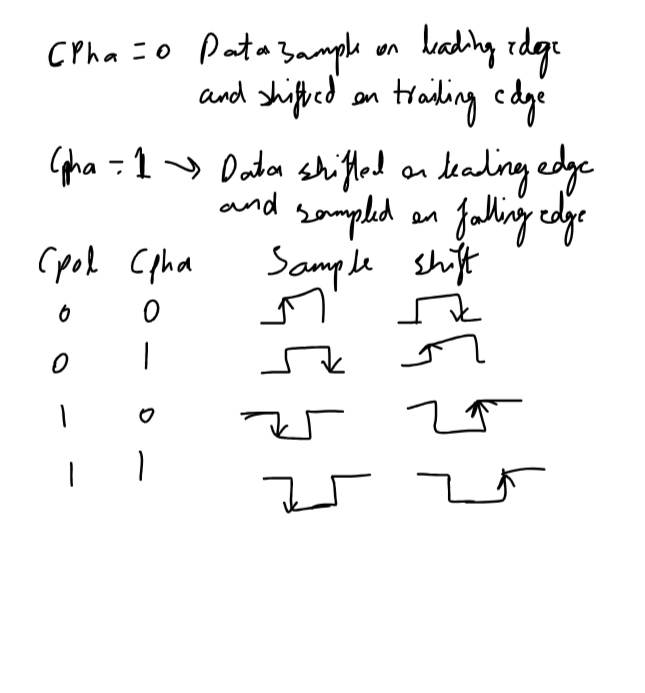 CPha = 0 Data sample on leading edge
and shifted on trailing edge
Cpha = 1 → Data shifted on leading edge
and sampled on falling edge
Cpol Cpha Sample shift
0 0
0 1
1 0
1 1